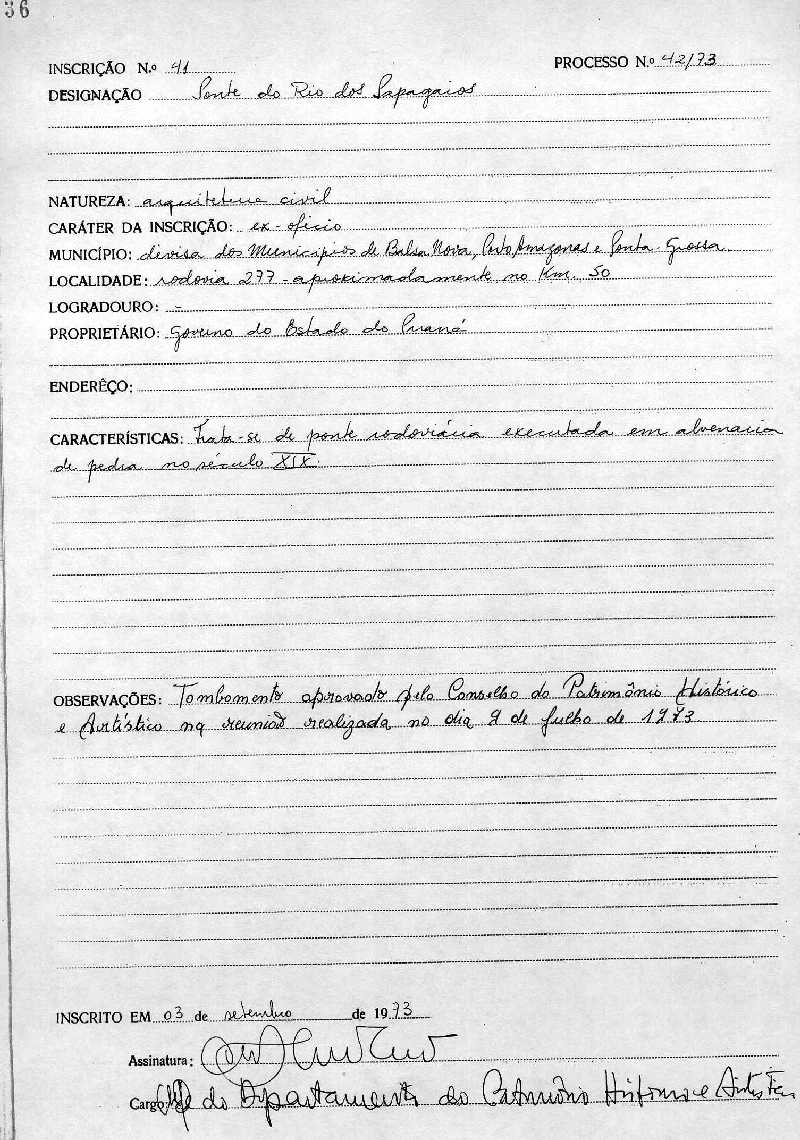 36
INSCRIÇÃO N.º 41 PROCESSO N.º 42/73
DESIGNAÇÃO Ponte do Rio dos Papagaios
NATUREZA: arquitetura civil
CARÁTER DA INSCRIÇÃO: ex-oficio
MUNICÍPIO: divisa dos Municípios de Balsa Nova, Porto Amazonas e Ponta-Grossa
LOCALIDADE: rodovia 277 - aproximadamente no Km. 50
LOGRADOURO: -
PROPRIETÁRIO: Governo do Estado do Paraná
ENDERÊÇO:
CARACTERÍSTICAS: Trata-se de ponte rodoviária executada em alvenaria
de pedra no século XIX.
OBSERVAÇÕES: Tombamento aprovado pelo Conselho do Patrimônio Histórico
e Artístico na reunião realizada no dia 9 de julho de 1973
INSCRITO EM 03 de setembro de 1973
Assinatura:
Cargo: Chefe do Departamento do Patrimônio Histórico e Artístico